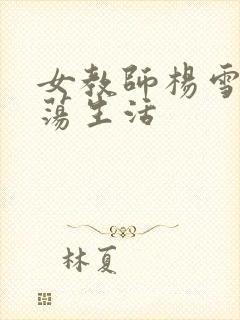 女教師楊雪
蕩生活
林夏